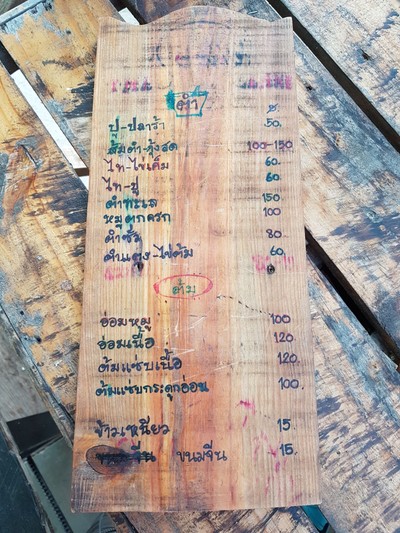 ตำ
฿.
ปู-ปลาร้า 50.
ส้มตำ-กุ้งสด 100-150
ไท-ไข่เค็ม 60.
ไท-ปู 60
ตำทะเล 150
หมูตกครก 100
ตำซั่ว 80
ตำแตง-ไข่ต้ม 60
ต้ม
อ่อมหมู 100
อ่อมเนื้อ 120
ต้มแซ่บเนื้อ 120.
ต้มแซ่บกระดูกอ่อน 100
ข้าวเหนียว 15.
ขนมจีน 15.